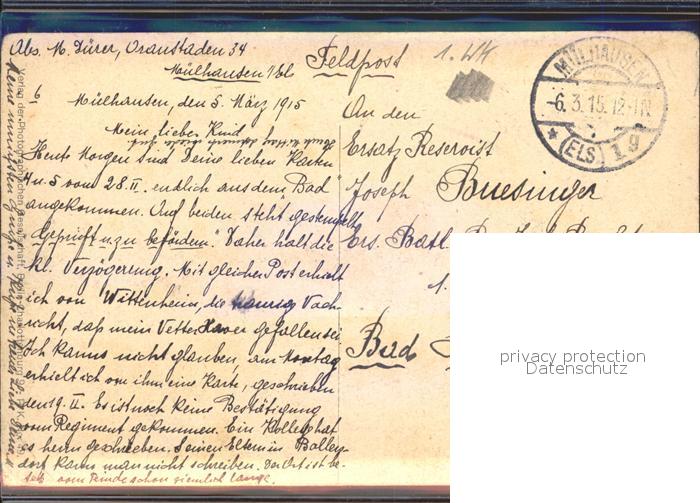 Abs. M. Dürer, Oranstaden 34
Mülhausen i/Els
Feldpost
1. WK
MÜLHAUSEN
-6.3.15.12-1N
* (ELS) 1 g
6
Mülhausen, den 5. März 1915
Mein lieber Kind
Heute Morgen sind Deine lieben Karten
4 u. 5 vom 28. II. endlich aus dem Bad
angekommen. Auf beiden steht gestempelt
"Geprüft u. zu befördern". Daher halt die
kl. Verzögerung. Mit gleicher Post erhielt
ich von Wittenheim, die traurig Nach-
richt, daß mein Vetter Xaver gefallen sei.
Ich kanns nicht glauben, am Montag
erhielt ich von ihm eine Karte, geschrieben
den 19. II. Es ist noch keine Bestätigung
vom Regiment gekommen. Ein Kollege hat
es heim geschrieben. Seinen Eltern in Bollwy-
dorf kann man nicht schreiben. Der Ort ist be-
setz vom Feinde schon ziemlich lange.
An den
Ersatz Reservist
Joseph Buesinger
Ers. Batl.
1.
Bad
privacy protection
Datenschutz
Verlag der Photographischen Gesellschaft